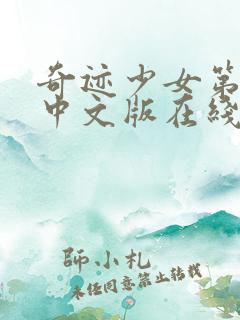 奇迹少女第
中文版在线
師小札
未经同意禁止转载